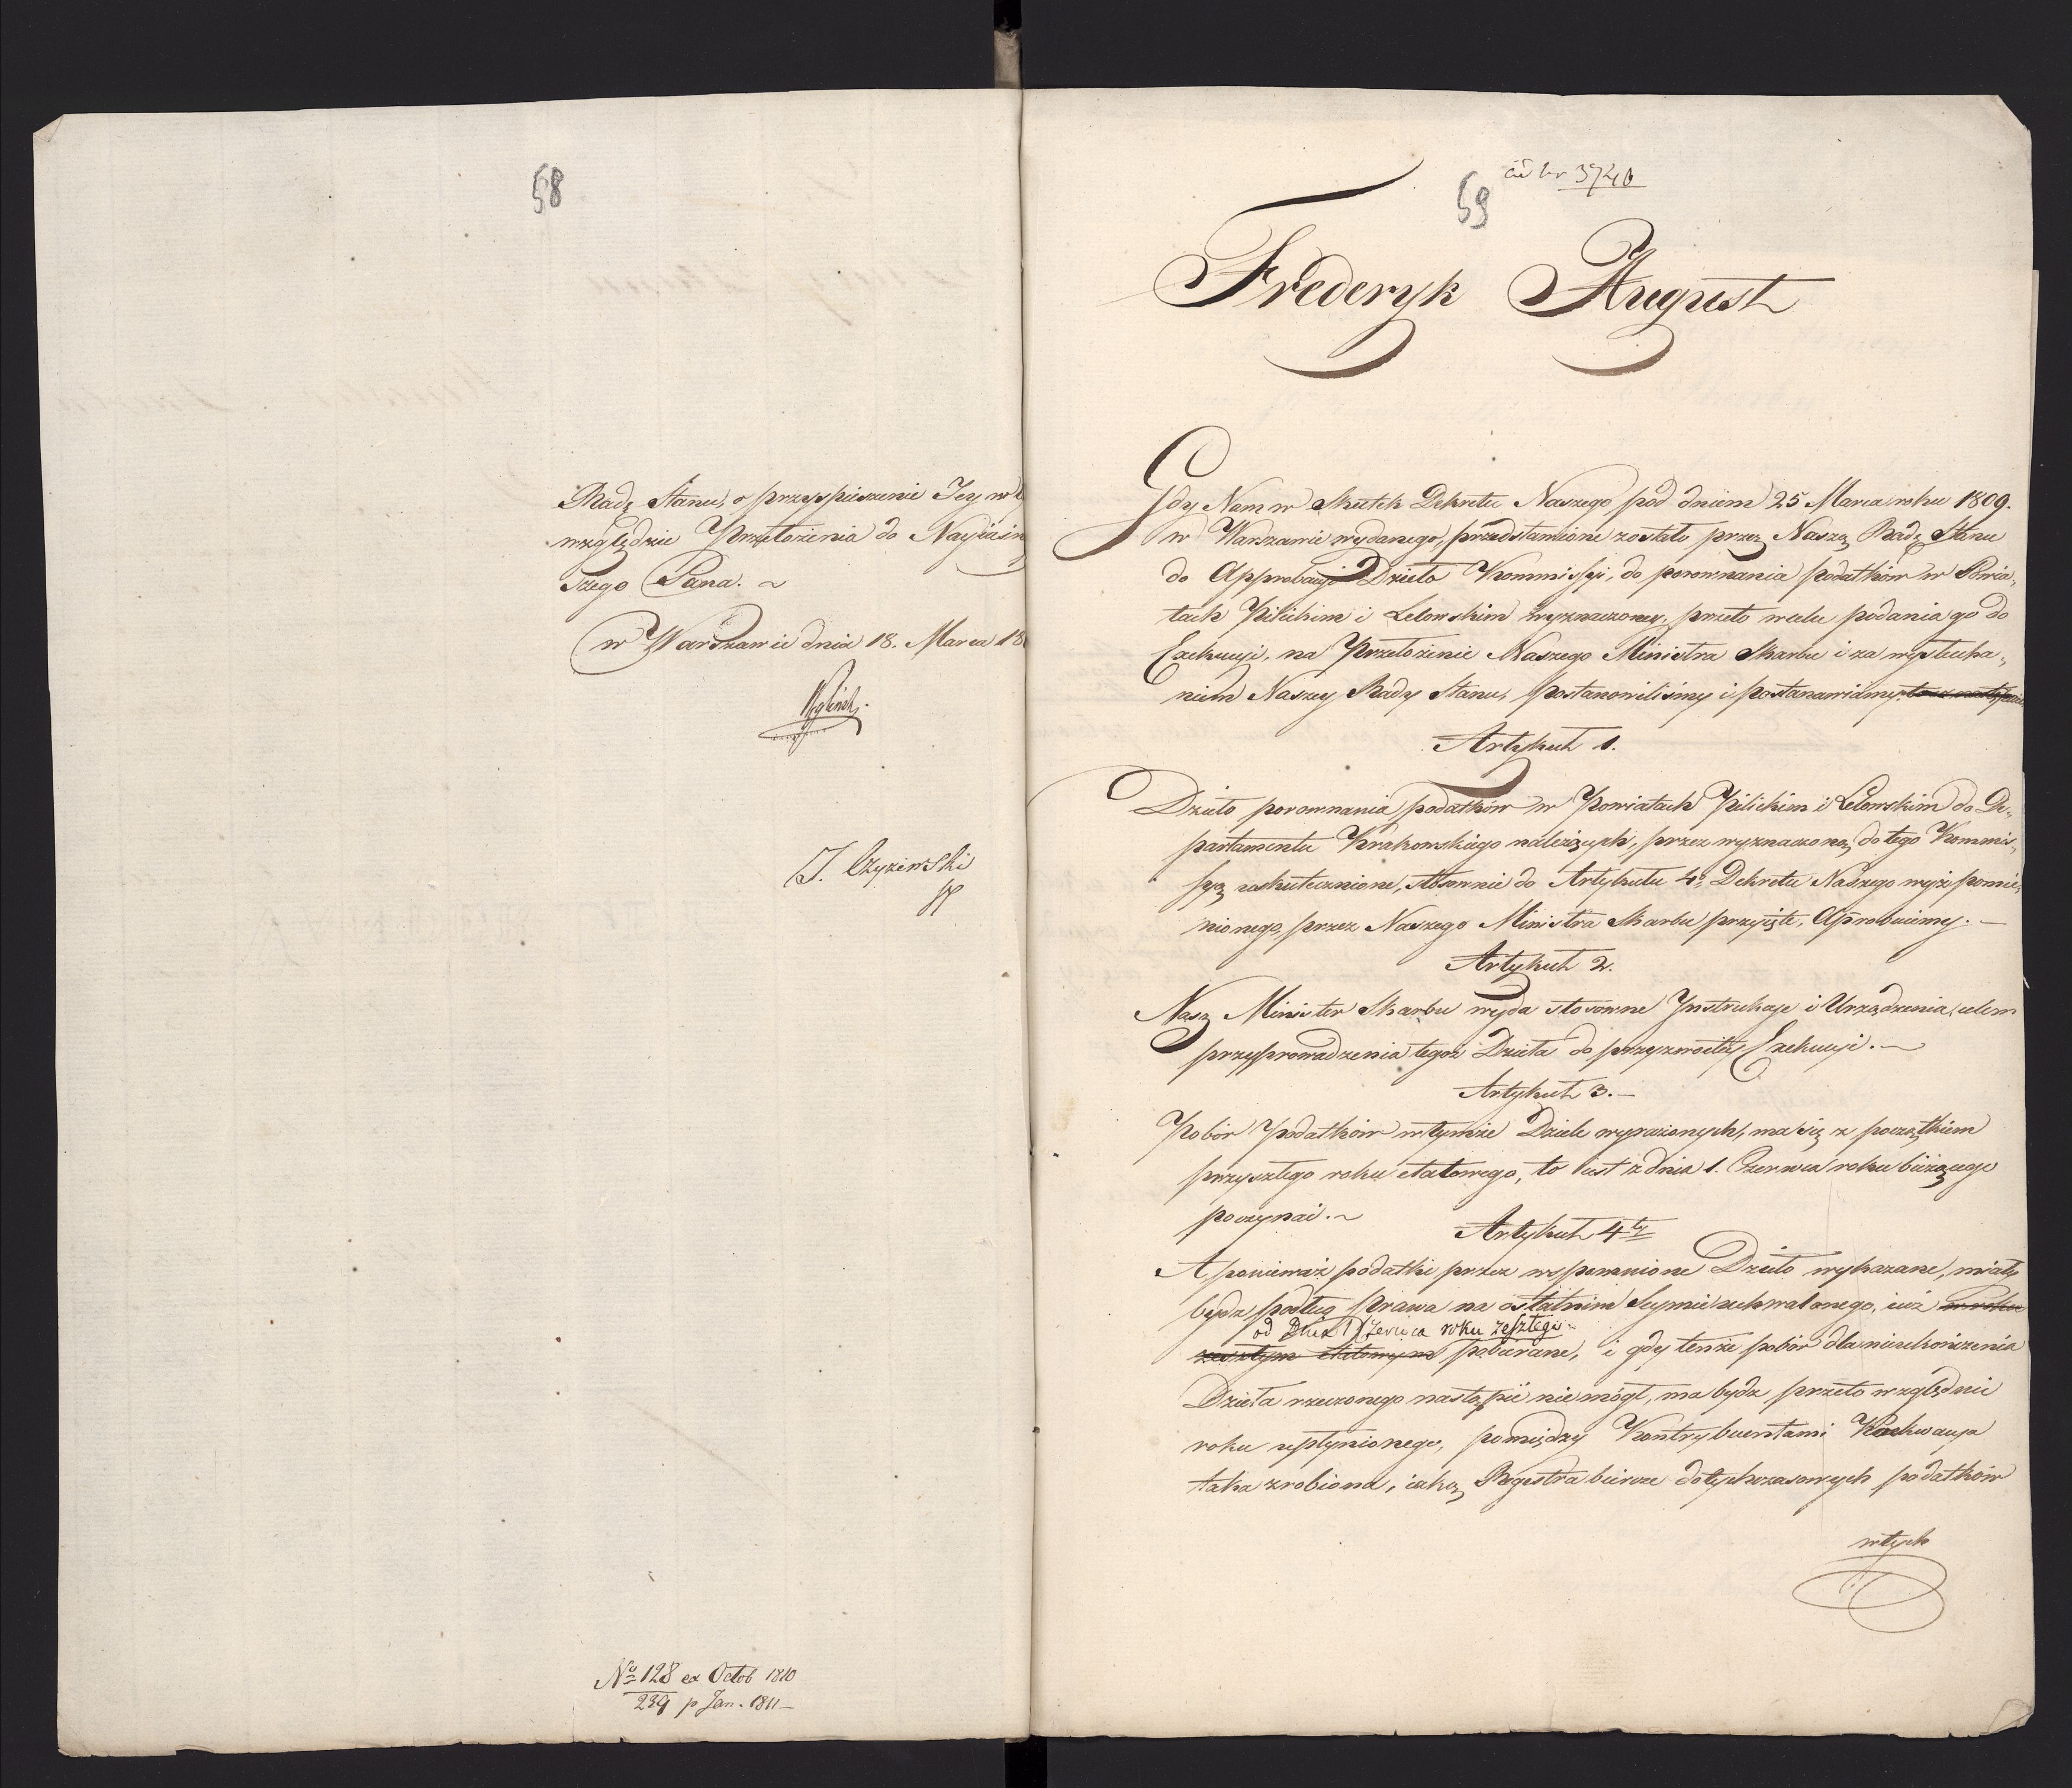 58
Radę Stanu, o przyspieszenie Jey w
względzie Przełożenia do Nayiaśn
szego Pana. ~
w Warszawie dnia 18. Marca 18
J. Czyżewski
No 128 ex Octob 1810
239 p Jan. 1811 –
59
ad Nr 3740
Frederyk August
Gdy Nam w Skutek Dekretu Naszego pod dniem 25 Marca roku 1809.
w Warszawie wydanego, przedstawione zostało przez Naszą Radę Stanu
do Approbacyi Dzieło Kommissyi, do porownania podatków w Powia„
tach Pilickim i Lelowskim wyznaczoney, przeto w celu podania go do
Exekucyi, na Przełożenie Naszego Ministra Skarbu i za wysłucha„
niem Naszey Rady Stanu, postanowiliśmy i postanawiamy
Artykuł 1.
Dzieło porownania podatków w Powiatach Pilickim i Lelowskim do De„
partamentu Krakowskiego należących, przez wyznaczoną do tego Kommis„
syą uskutecznione, stosownie do Artykułu 4o Dekretu Naszego wyż pomie„
nionego, przez Naszego Ministra Skarbu przyięte, Aprobuiemy. —
Artykuł 2.
Nasz Minister Skarbu wyda stosowne Instrukcye i Urządzenia, celem
przyprowadzenia tegoż Dzieła do przyzwoitey Exekucyi. —
Artykuł 3. —
Pobór Podatków w tymże Dziele wyrażonych, ma się z początkiem
przyszłego roku etatowego, to iest z dnia 1. Czerwca roku bieżącego
poczynać. ~
Artykuł 4ty
A ponieważ podatki przez wspomnione Dzieło wykazane, miały
bydź podług Prawa na ostatnim Seymie uchwalonego, iuż w roku
od Dnia 1 Czerwca roku zeszłego
zeszłym etatowym pobierane, i gdy tenże pobór dla nieukończenia
Dzieła rzeczonego nastąpić nie mógł, ma bydź przeto względnie
roku upłynionego, pomiędzy Kontrybuentami Exekwacya
taka zrobiona, iaką Regestra biercze dotychczasowych podatków
w tych